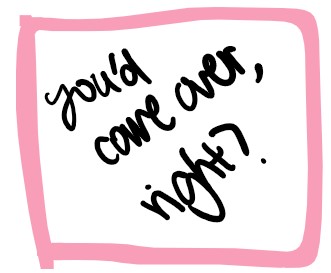 you'd
come over,
right?